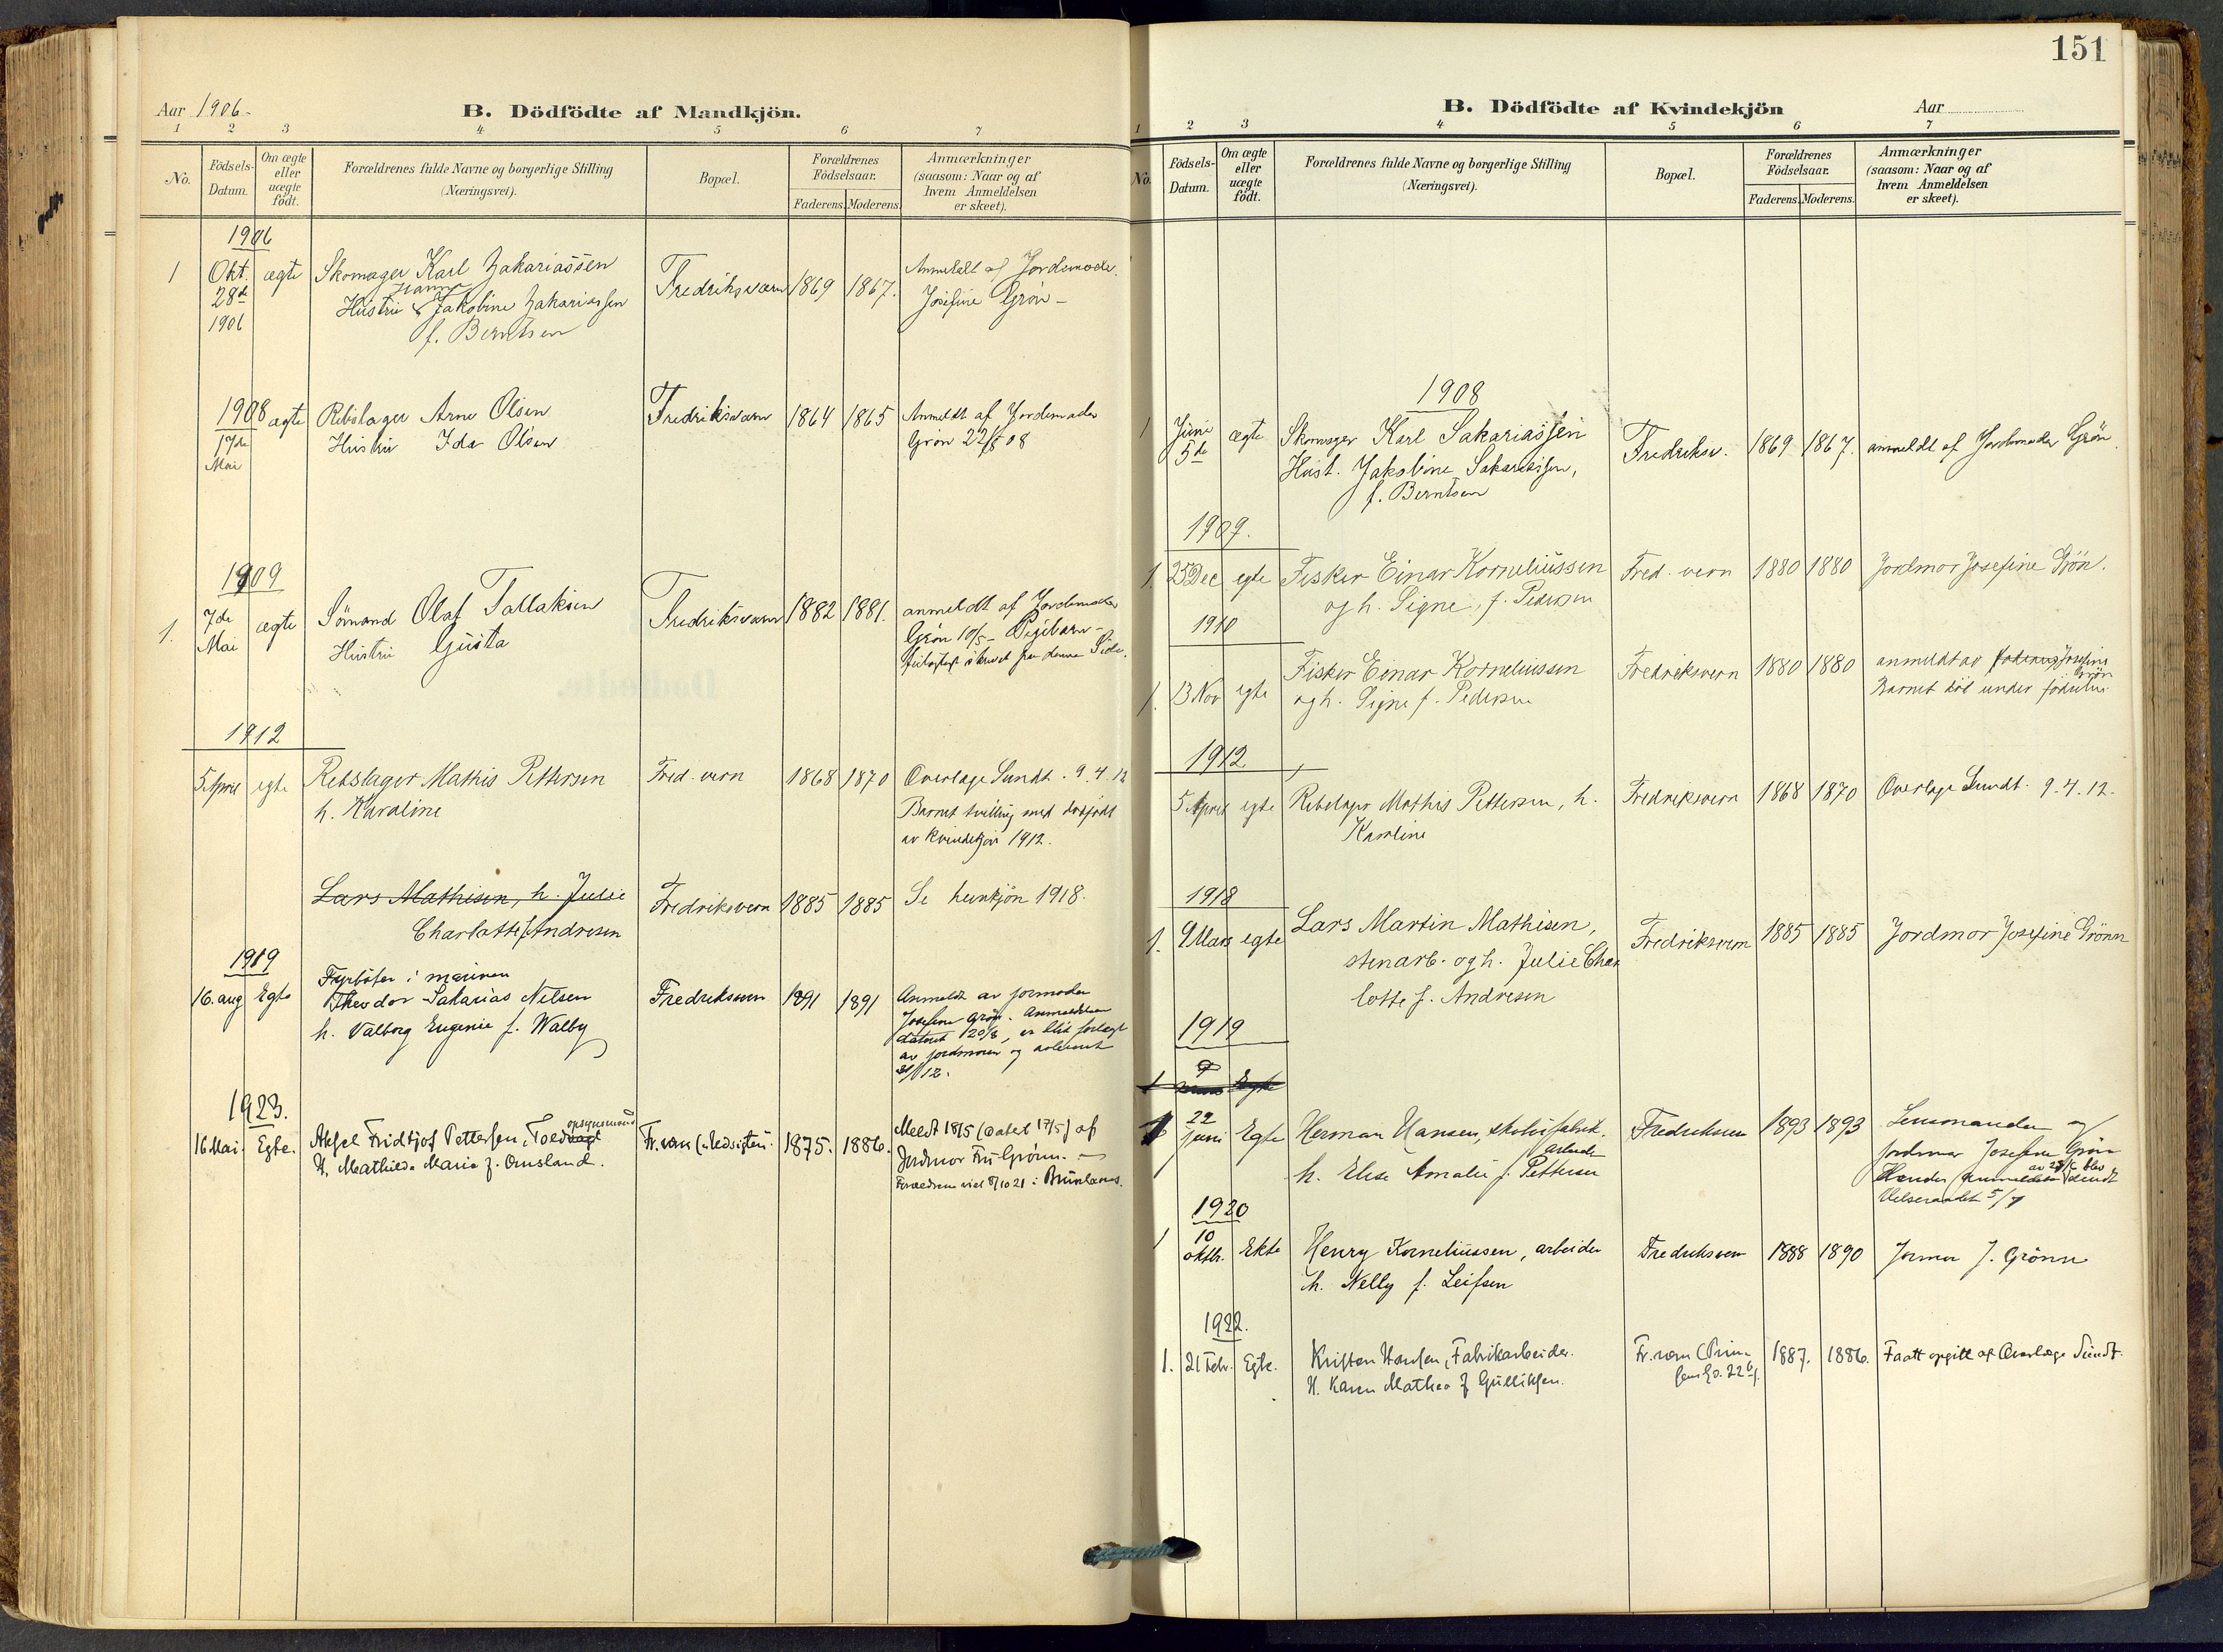 Aar 1906.
B. Dödfödte af Mandkjön.
1 2 3 4 5 6 7
No.
Födsels-Datum.
Om ægte eller uægte födt.
Forældrenes fulde Navne og borgerlige Stilling
(Næringsvei).
Bopæl.
Forældrenes Födselsaar.
Faderens. Moderens.
Anmærkninger
(saasom: Naar og af
hvem Anmeldelsen
er skeet).
1906
1 Okt. 28de 1906 ægte Skomager Karl Zakariassen Fredriksværn 1869 1867. Anmeldt af Jordemoder
Hustru Jakobine Zakariassen Josefine Grön
f. Berntsen
1908 ægte Rebslager Arne Olsen Fredriksværn 1864 1865 Anmeldt af Jordemoder
17de Mai Hustru Ida Olsen Grön 22/5 08
1909
1. 7de Mai ægte Sömand Olaf Tallaksen Fredriksværn 1882 1881. anmeldt af Jordemoder
Hustru Gusta Grön 10/5 - Pigebarn -
feilagtigt skrevet paa denne Side.
1912
5 April egte Rebslager Mathis Pettersen Fred. vern 1868 1870 Overlæge Sundt. 9.4.12
h. Karoline Barnet tvilling med dødfødt
av kvindekjön 1912.
Lars Mathisen, h. Julie Fredriksvern 1885 1885 Se kvinkjön 1918.
Charlotte f. Andresen
1919
Fyrböter i marinen
16. aug Egte Theodor Sakarias Nilsen Fredriksvern 1891 1891 Anmeldt av jormoder
h. Valborg Eugenie f. Walby Josefine Grön. Anmeldelsen
dateret 20/8, er blit forlagt
av jordmoren og avleveret
/12.
1923.
16 Mai. Egte. Aksel Fridtjof Pettersen, Told opsynsmand Fr.værn 1875. 1886. Meldt 18/5 (datert 17/5) af
H. Mathilde Marie f. Omsland. Jordmor Fru Grönn.
Foreldrene viet 8/10 21 i Brunlanes.
151
B. Dödfödte af Kvindekjön
Aar
1 2 3 4 5 6 7
No.
Födsels-Datum.
Om ægte eller uægte födt.
Forældrenes fulde Navne og borgerlige Stilling
(Næringsvei).
Bopæl.
Forældrenes Födselsaar.
Faderens. Moderens.
Anmærkninger
(saasom: Naar og af
hvem Anmeldelsen
er skeet).
1908
1 Juni 5te ægte Skomager Karl Sakariassen Fredriksv. 1869 1867. anmeldt af Jordemoder Grön.
Hust. Jakobine Sakariassen,
f. Berntsen
1909.
1. 25 Dec egte Fisker Einar Korneliussen Fred. vern 1880 1880 Jordmor Josefine Grön.
og h. Signe, f. Pedersen
1910
1. 13 Nov egte Fisker Einar Korneliussen Fredriksvern 1880 1880 anmeldt av Josefine Grön
og h. Signe f. Pedersen Barnet död under födselen.
1912
5 April egte Rebslager Mathis Pettersen, h. Fredriksvern 1868 1870 Overlæge Sundt. 9.4.12.
Karoline
1918
1. 9 Mars egte Lars Martin Mathisen, Fredriksvern 1885 1885 Jordmor Josefine Grönn
stenarb. og h. Julie Char
lotte f. Andresen
1919
1 9 Egte
1 22 juni Egte Herman Hansen, fabrik. arbeider Fredriksvern 1893 1893 Lensmanden og
h. Elise Amalie f. Pettersen jordmor Josefine Grön
Hendes anmeldelse av 23/6 blev sendt
Helseraadet 5/7
1920
1 10 oktbr. Ekte Henry Korneliussen, arbeider Fredriksvern 1888 1890 Jormor J. Grönn
h. Nelly f. Leifsen
1922.
1. 21 Febr. Egte. Kristen Hansen, Fabrikarbeider. Fr.værn 1887. 1886. Faatt opgitt af Overlæge Sundt.
H. Karen Mathea f Gulliksen.